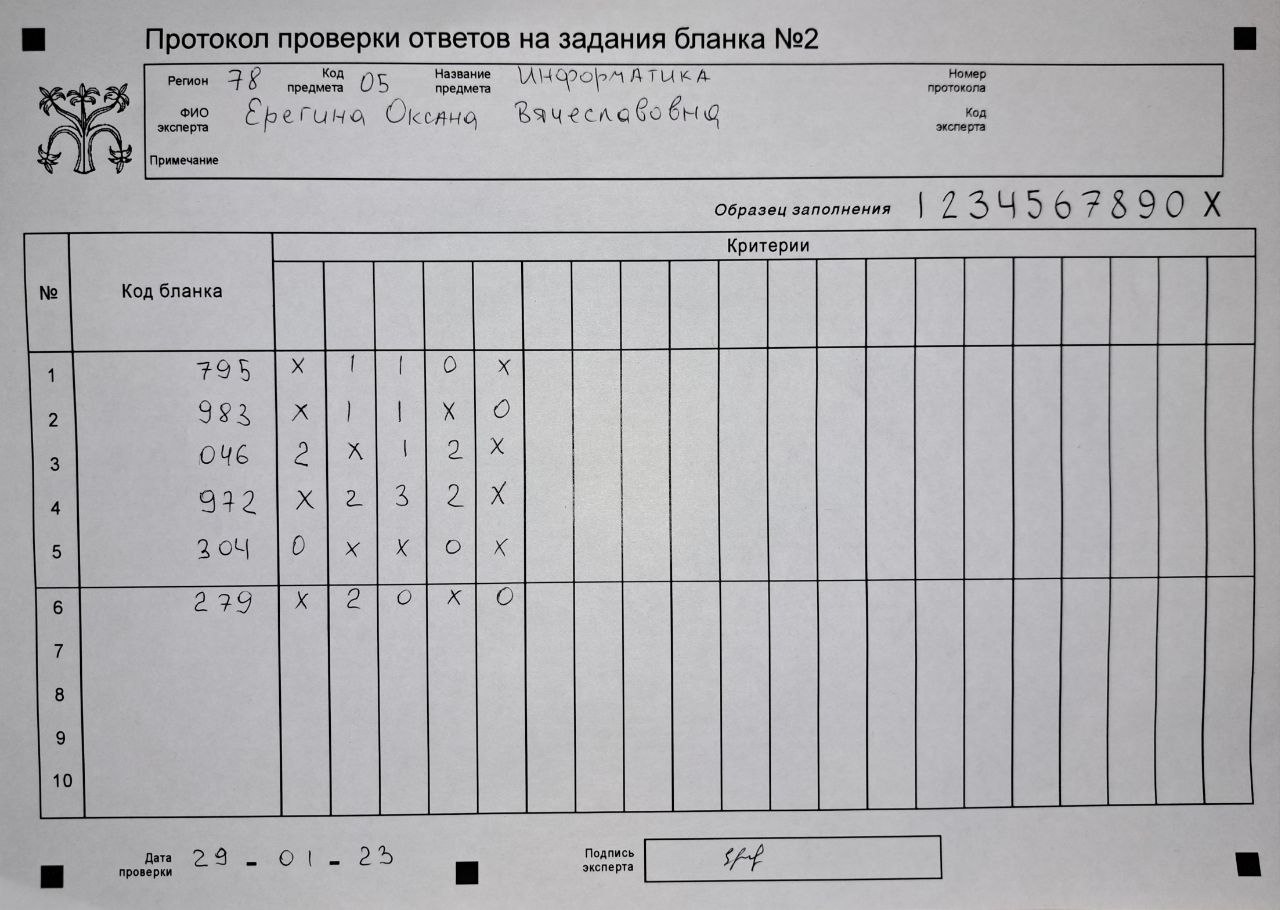 Протокол проверки ответов на задания бланка №2
Регион 78 Код предмета 05 Название предмета Информатика Номер протокола
ФИО эксперта Ерегина Оксана Вячеславовна Код эксперта
Примечание
Образец заполнения 1 2 3 4 5 6 7 8 9 0 X
№ Код бланка Критерии
1 795 X 1 1 0 X
2 983 X 1 1 X 0
3 046 2 X 1 2 X
4 972 X 2 3 2 X
5 304 0 X X 0 X
6 279 X 2 0 X 0
7
8
9
10
Дата проверки 29-01-23 Подпись эксперта